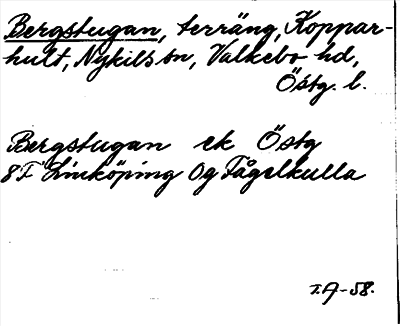 Bergstugan, terräng, Koppar-
hult, Nykils sn, Valkebo hd,
Östg. l.
Bergstugan ek Östg
8F Linköping Og Fågelkulla
I.A-58.